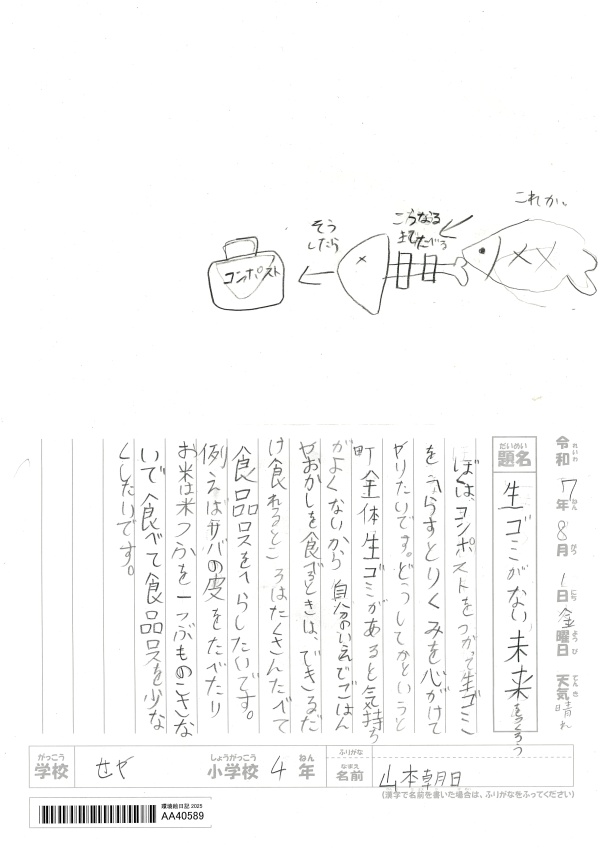 これが、
こうなる
までたべる
そう
したら
コンポスト
令和7年8月1日金曜日 天気晴れ
れいわ ねん がつ にち ようび てんき
だいめい
題名 生ゴミがない未来をつくろう
ぼくは、コンポストをつかって生ゴミ
をへらすとりくみを心がけて
やりたいです。どうしてかというと
町全体生ゴミがあると気持ち
がよくないから自分のいえでごはん
やおかしを食べるときは、できるだ
け食れるところはたくさんたべて
食品ロスをへらしたいです。
例えばサバの皮をたべたり
お米は米つぶを一つぶものこさな
いで食べて食品ロスを少な
くしたいです。
がっこう しょうがっこう ねん ふりがな
学校 せや 小学校 4年
なまえ
名前 山本朝日
(漢字で名前を書いた場合は、ふりがなをふってください)
環境絵日記 2025
AA40589